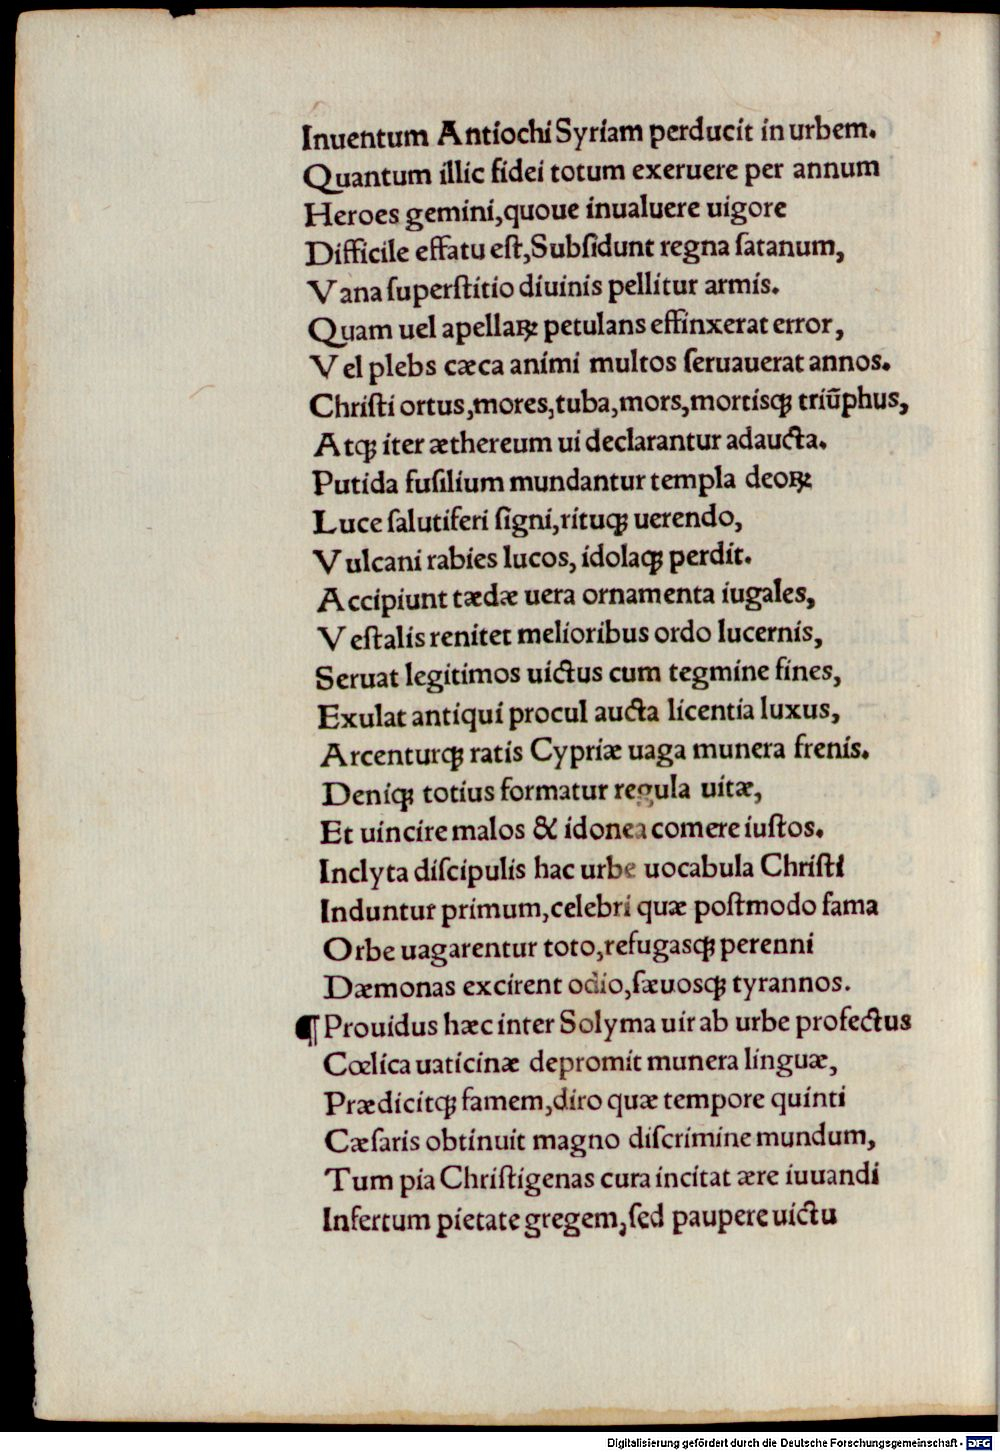 Inuentum Antiochi Syriam perducit in urbem.
Quantum illic fidei totum exeruere per annum
Heroes gemini,quoue inualuere uigore
Difficile effatu eſt,Subſidunt regna ſatanum,
Vana ſuperſtitio diuinis pellitur armis.
Quam uel apellaꝝ petulans effinxerat error,
Vel plebs cæca animi multos ſeruauerat annos.
Chriſti ortus,mores,tuba,mors,mortisqꝫ triũphus,
Atqꝫ iter æthereum ui declarantur adaucta.
Putida fuſilium mundantur templa deoꝝ
Luce ſalutiferi ſigni,rituqꝫ uerendo,
Vulcani rabies lucos, idolaqꝫ perdit.
Accipiunt tædæ uera ornamenta iugales,
Veſtalis renitet melioribus ordo lucernis,
Seruat legitimos uictus cum tegmine fines,
Exulat antiqui procul aucta licentia luxus,
Arcenturqꝫ ratis Cypriæ uaga munera frenis.
Deniqꝫ totius formatur regula uitæ,
Et uincire malos & idonea comere iuſtos.
Inclyta diſcipulis hac urbe uocabula Chriſti
Induntur primum,celebri quæ poſtmodo fama
Orbe uagarentur toto,refugasqꝫ perenni
Dæmonas excirent odio,ſæuosqꝫ tyrannos.
¶ Prouidus hæc inter Solyma uir ab urbe profectus
Cœlica uaticinæ depromit munera linguæ,
Prædicitqꝫ famem,diro quæ tempore quinti
Cæſaris obtinuit magno diſcrimine mundum,
Tum pia Chriſtigenas cura incitat ære iuuandi
Infertum pietate gregem,ſed paupere uictu
Digitalisierung gefördert durch die Deutsche Forschungsgemeinschaft - DFG